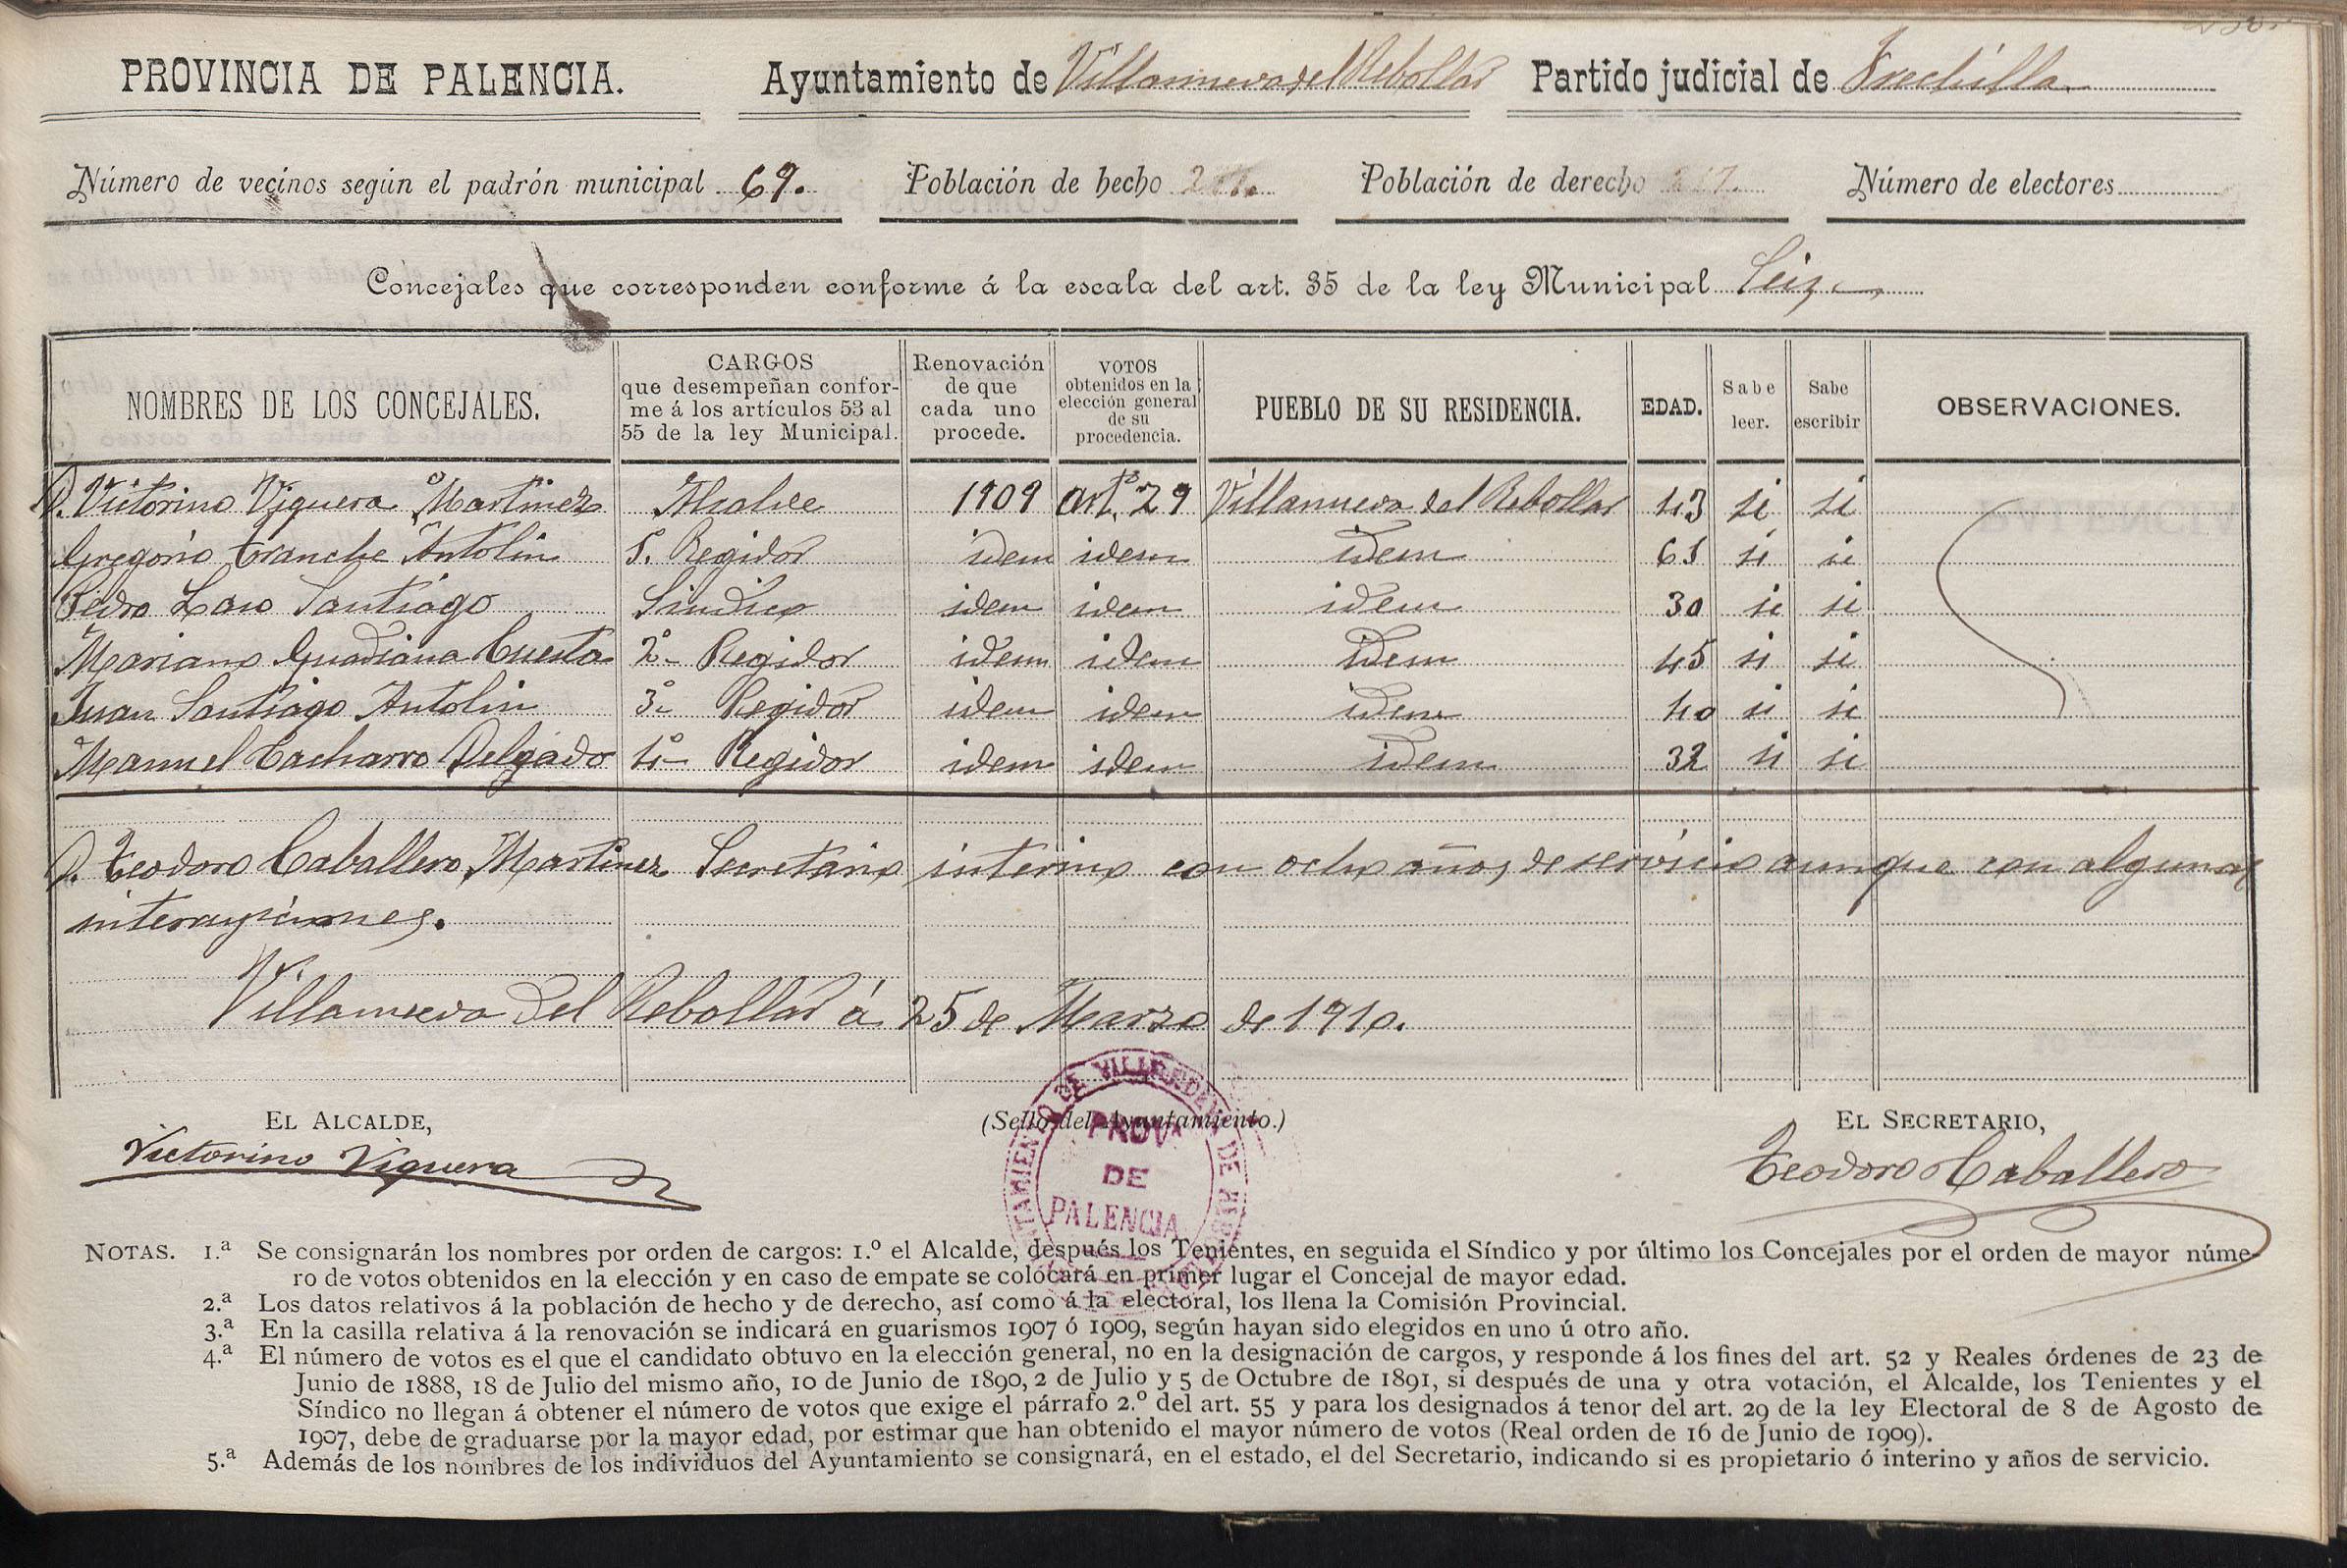 PROVINCIA DE PALENCIA. Ayuntamiento de Villanueva del Rebollar Partido judicial de Frechilla
Número de vecinos según el padrón municipal 69. Población de hecho Población de derecho Número de electores
Concejales que corresponden conforme á la escala del art. 35 de la ley Municipal Seis
NOMBRES DE LOS CONCEJALES.
CARGOS
que desempeñan confor-
me á los artículos 53 al
55 de la ley Municipal.
Renovación
de que
cada uno
procede.
VOTOS
obtenidos en la
elección general
de su
procedencia.
PUEBLO DE SU RESIDENCIA.
EDAD.
Sabe
leer.
Sabe
escribir
OBSERVACIONES.
D. Victorino Viguera Martinez Alcalde 1909 artº. 29 Villanueva del Rebollar 43 si si
Gregorio Tranche Antolin Regidor idem idem idem si si
Pedro Laso Santiago Sindico idem idem idem 30 si si
Mariano Guadiana Cuesta 2º Regidor idem idem idem 45 si si
Juan Santiago Antolin 3º Regidor idem idem idem 40 si si
Manuel Cacharro Delgado 4º Regidor idem idem idem 32 si si
D. Teodoro Caballero Martinez Secretario interino con ocho años de servicio aunque con algunas
interrupciones.
Villanueva del Rebollar á 25 de Marzo de 1910.
EL ALCALDE,
Victorino Viguera
(Sello del Ayuntamiento.)
PROVA
DE
PALENCIA
EL SECRETARIO,
Teodoro Caballero
NOTAS. 1.ª Se consignarán los nombres por orden de cargos: 1.º el Alcalde, después los Tenientes, en seguida el Síndico y por último los Concejales por el orden de mayor núme-
ro de votos obtenidos en la elección y en caso de empate se colocará en primer lugar el Concejal de mayor edad.
2.ª Los datos relativos á la población de hecho y de derecho, así como á la electoral, los llena la Comisión Provincial.
3.ª En la casilla relativa á la renovación se indicará en guarismos 1907 ó 1909, según hayan sido elegidos en uno ú otro año.
4.ª El número de votos es el que el candidato obtuvo en la elección general, no en la designación de cargos, y responde á los fines del art. 52 y Reales órdenes de 23 de
Junio de 1888, 18 de Julio del mismo año, 10 de Junio de 1890, 2 de Julio y 5 de Octubre de 1891, si después de una y otra votación, el Alcalde, los Tenientes y el
Síndico no llegan á obtener el número de votos que exige el párrafo 2.º del art. 55 y para los designados á tenor del art. 29 de la ley Electoral de 8 de Agosto de
1907, debe de graduarse por la mayor edad, por estimar que han obtenido el mayor número de votos (Real orden de 16 de Junio de 1909).
5.ª Además de los nombres de los individuos del Ayuntamiento se consignará, en el estado, el del Secretario, indicando si es propietario ó interino y años de servicio.